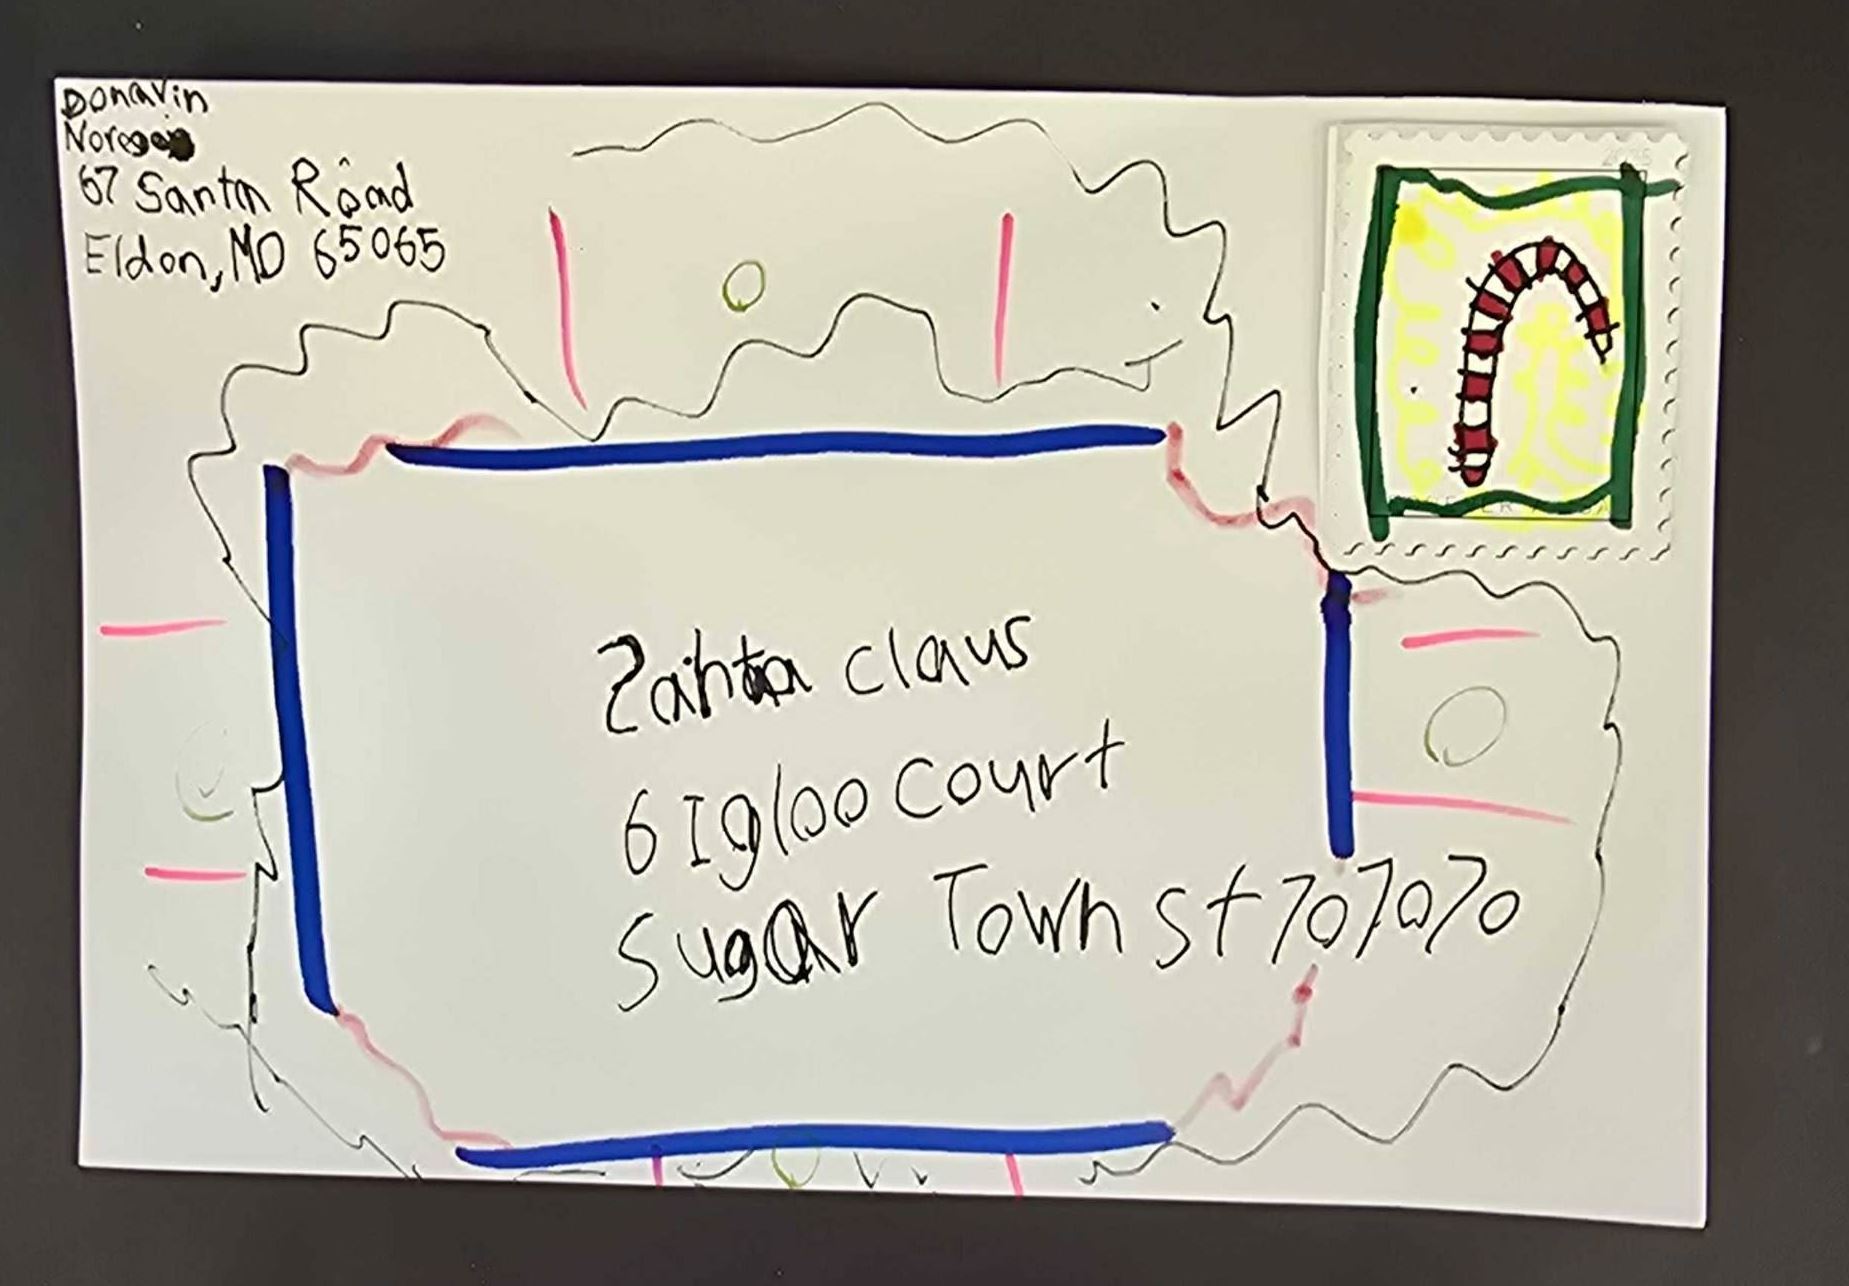 Donavin
67 Santa Road
Eldon, MO 65065
Santa claus
6 Igloo court
Sugar Town St 707070